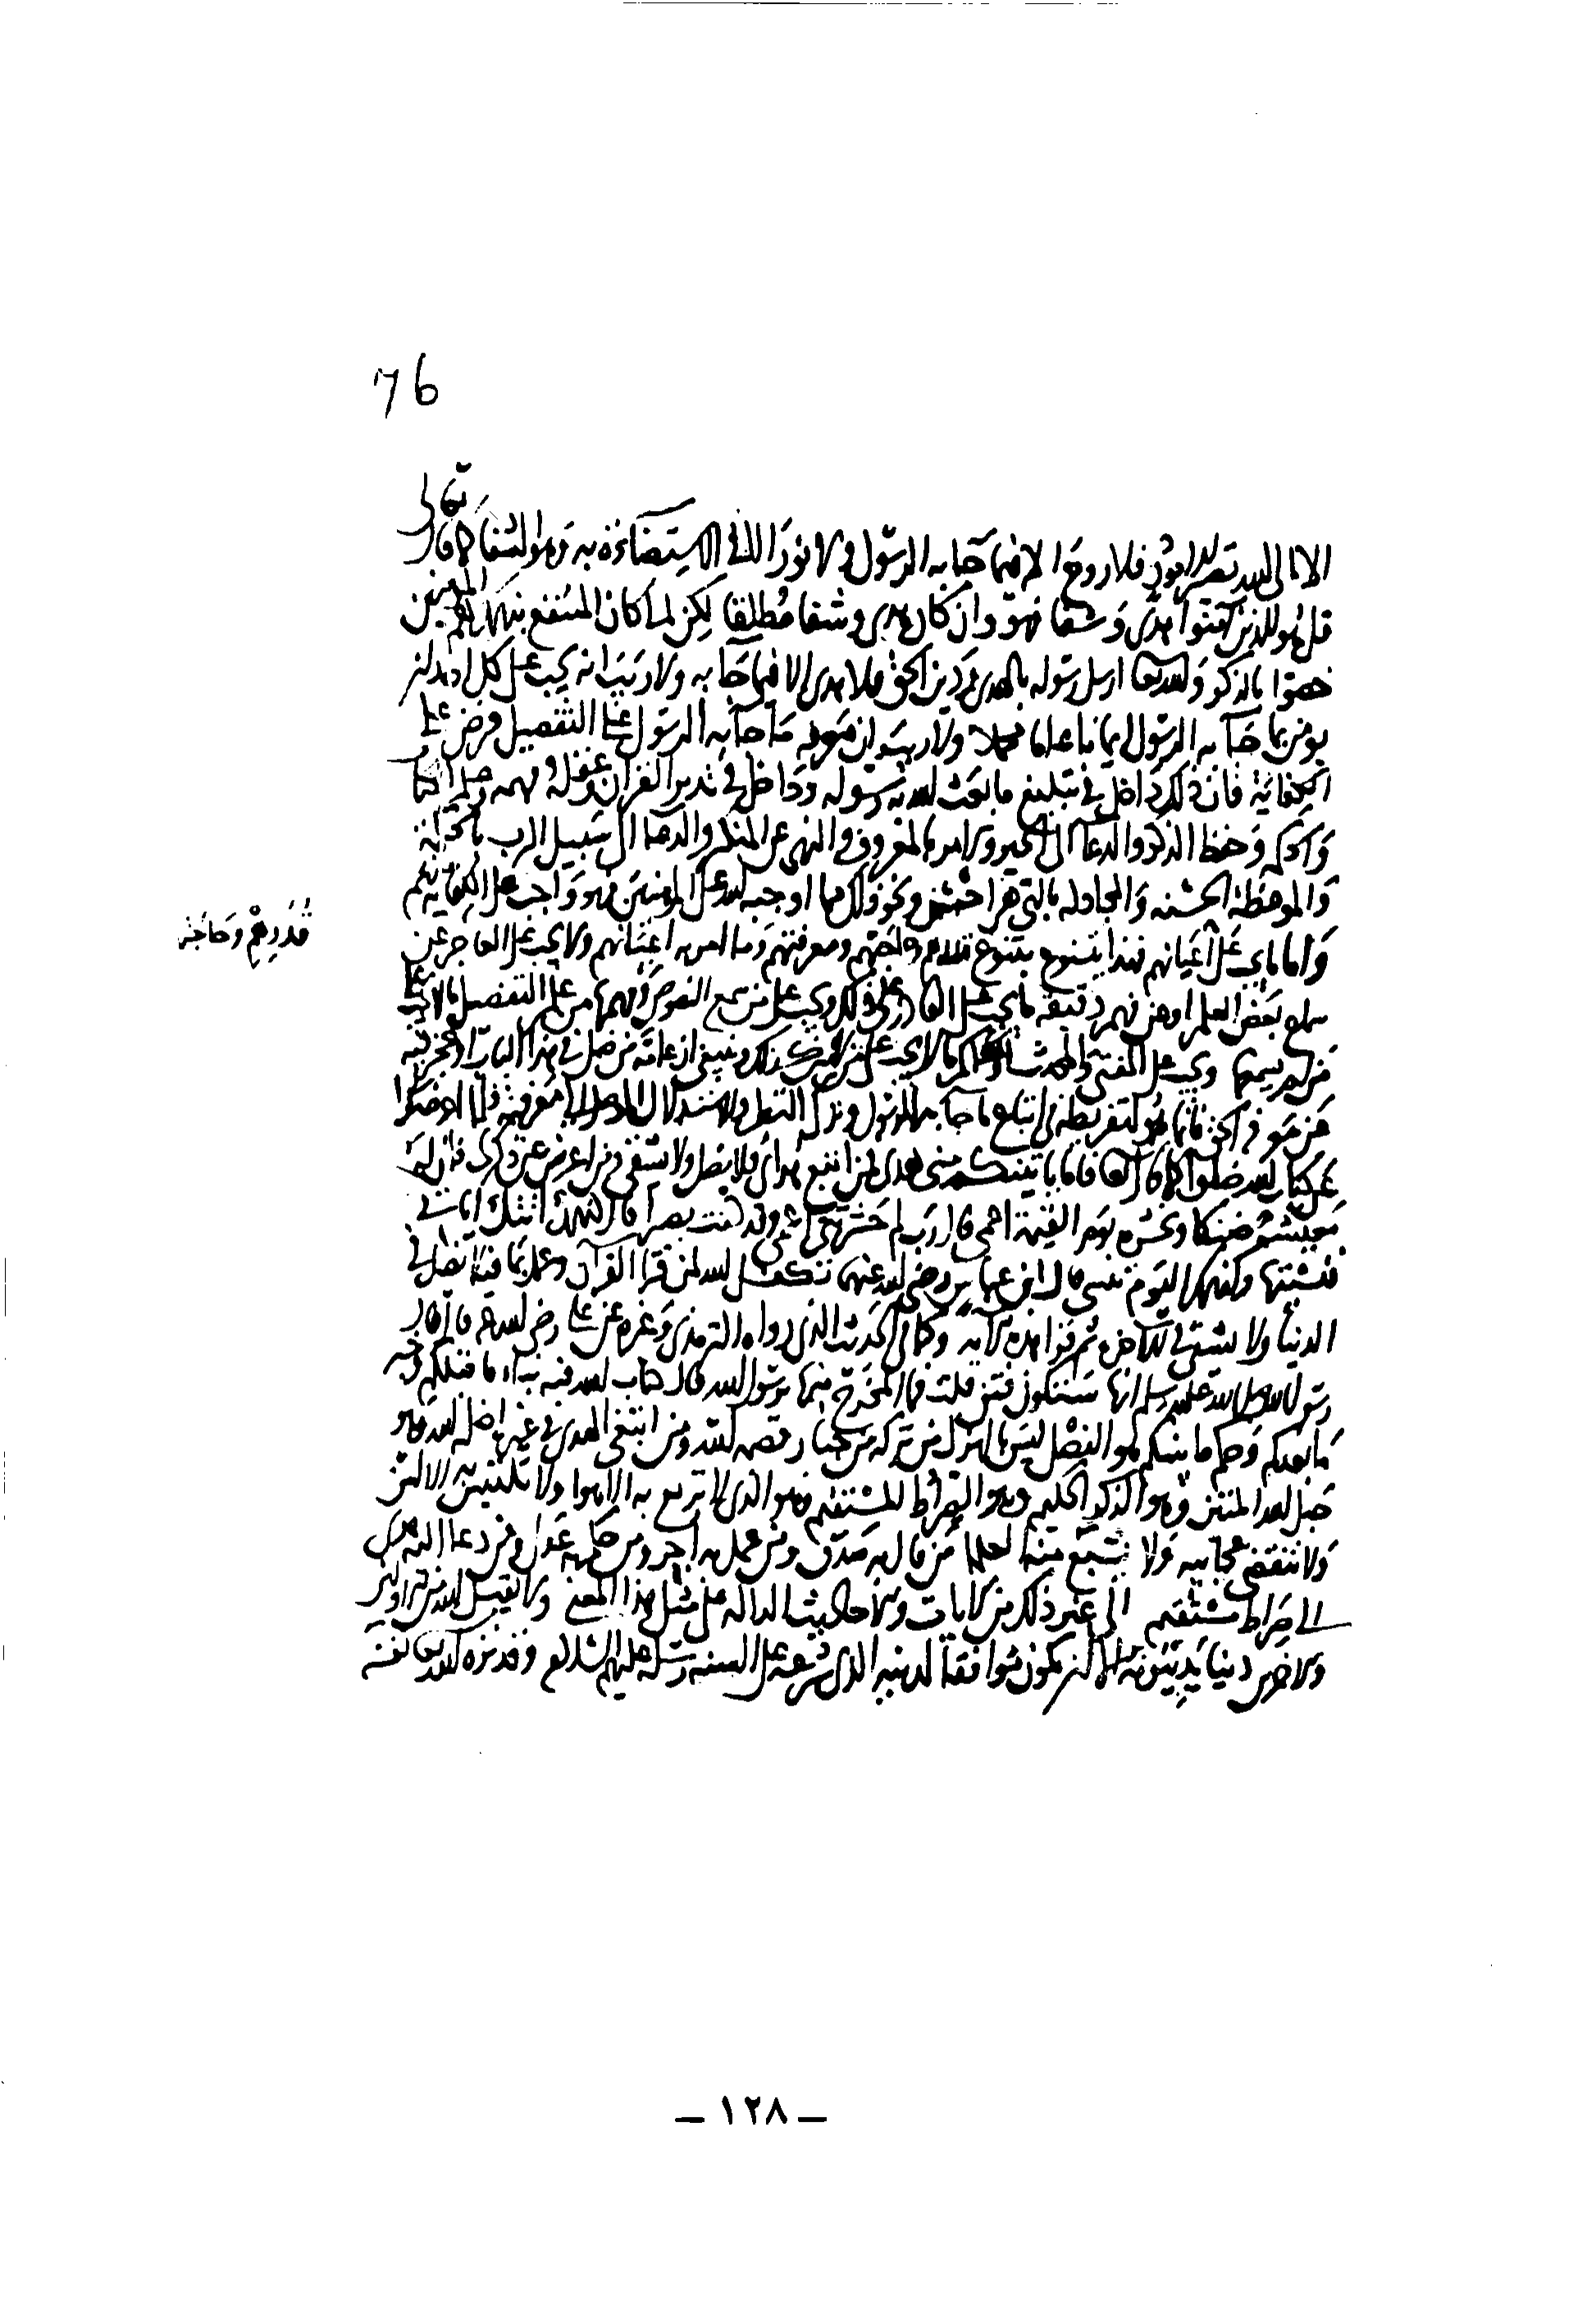 76
الا الى الله تصير الامور فلا روح الا فيما جا به الرسول ولا نور الا في الاستضاءة به وهو الشفا كما قال تعالى
قل هو للذين آمنوا هدى وشفا فهو وان كان هدى وشفا مطلقا لكن لما كان المنتفع بذلك هم المؤمنين
خصوا بالذكر والله تعا ارسل رسوله بالهدى ودين الحق فلا هدى الا فيما جا به ولا ريب انه يجب على كل احد ان
يومن بما جآ به الرسول ايمانا عاما مجملا ولا ريب ان معرفة ما جآ به الرسول على التفصيل فرض على
الكفاية فان ذلك داخل في تبليغ ما بعث الله به رسوله وداخل في تدبر القرآن وعقله وفهمه وعلم الكتاب
والحكمه وحفظ الذكر والدعا الى الخير والامر بالمعروف والنهي عن المنكر والدعا الى سبيل الرب بالحكمة
والموعظة الحسنه والمجادله بالتي هي احسن ونحو ذلك مما اوجبه الله على المؤمنين فهو واجب على الكفاية منهم
واما ما يجب على اعيانهم فهذا يتنوع بتنوع قدرهم وحاجتهم ومعرفتهم وما امر به اعيانهم ولا يجب على العاجز عن
قدرهم وحاجتهم
سماع بعض العلم او عن فهم دقيقه ما يجب على القادر على ذلك ويجب على من سمع النصوص وفهمها من علم التفصيل ما لا يجب على
من لم يسمعها ويجب على المفتي والمحدث والحاكم ما لا يجب على من ليس كذلك وينبغي ان عامة من ضل في هذا الباب او عجز فيه
عن معرفة الحق فانما هو لتفريطه في اتباع ما جا به الرسول وترك النظر والاستدلال الموصل الى معرفته فلما اعرضوا
عن كتاب الله ضلوا كما قال تعا فاما ياتينكم مني هدى فمن اتبع هداى فلا يضل ولا يشقى ومن اعرض عن ذكرى فان له
معيشة ضنكا ونحشره يوم القيمة اعمى قال رب لم حشرتني اعمى وقد كنت بصيرا قال كذلك اتتك اياتنا
فنسيتها وكذلك اليوم تنسى قال ابن عباس رضي الله عنهما تكفل الله لمن قرا القرآن وعمل بما فيه ان لا يضل في
الدنيا ولا يشقى في الاخره ثم قرا هذه الآيه وكما في الحديث الذي رواه الترمذي وغيره عن علي رضي الله عنه قال قال
رسول الله صلى الله عليه وسلم انها ستكون فتن قلت فما المخرج منها يرسول الله قال كتاب الله فيه نبا ما قبلكم وخبر
ما بعدكم وحكم ما بينكم هو الفصل ليس بالهزل من تركه من جبار قصمه الله ومن ابتغى الهدى في غيره اضله الله وهو
حبل الله المتين وهو الذكر الحكيم وهو الصراط المستقيم وهو الذي لا تزيع به الاهوا ولا تلتبس به الالسن
ولا تنقضي عجائبه ولا يشبع منه العلما من قال به صدق ومن عمل به اجر ومن حكم به عدل ومن دعا اليه هدى
الى صراط مستقيم الى غير ذلك من الايات والاحاديث الداله على مثل هذا المعنى ولا يقبل الله من الاولين
والاخرين دينا يدينون به الا ان يكون موافقا لدينه الذى شرعه على السنه رسله عليهم السلام وقد نزه الله تعا نفسه
– ١٢٨ –